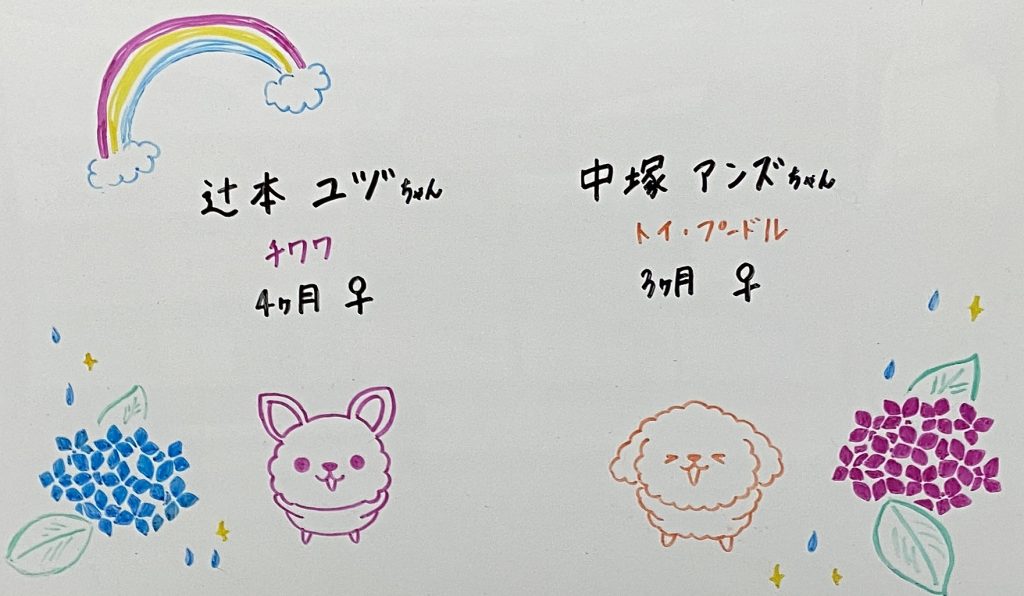 辻本 ユヅちゃん
チワワ
4ヶ月 ♀
中塚 アンズちゃん
トイ・プードル
3ヶ月 ♀